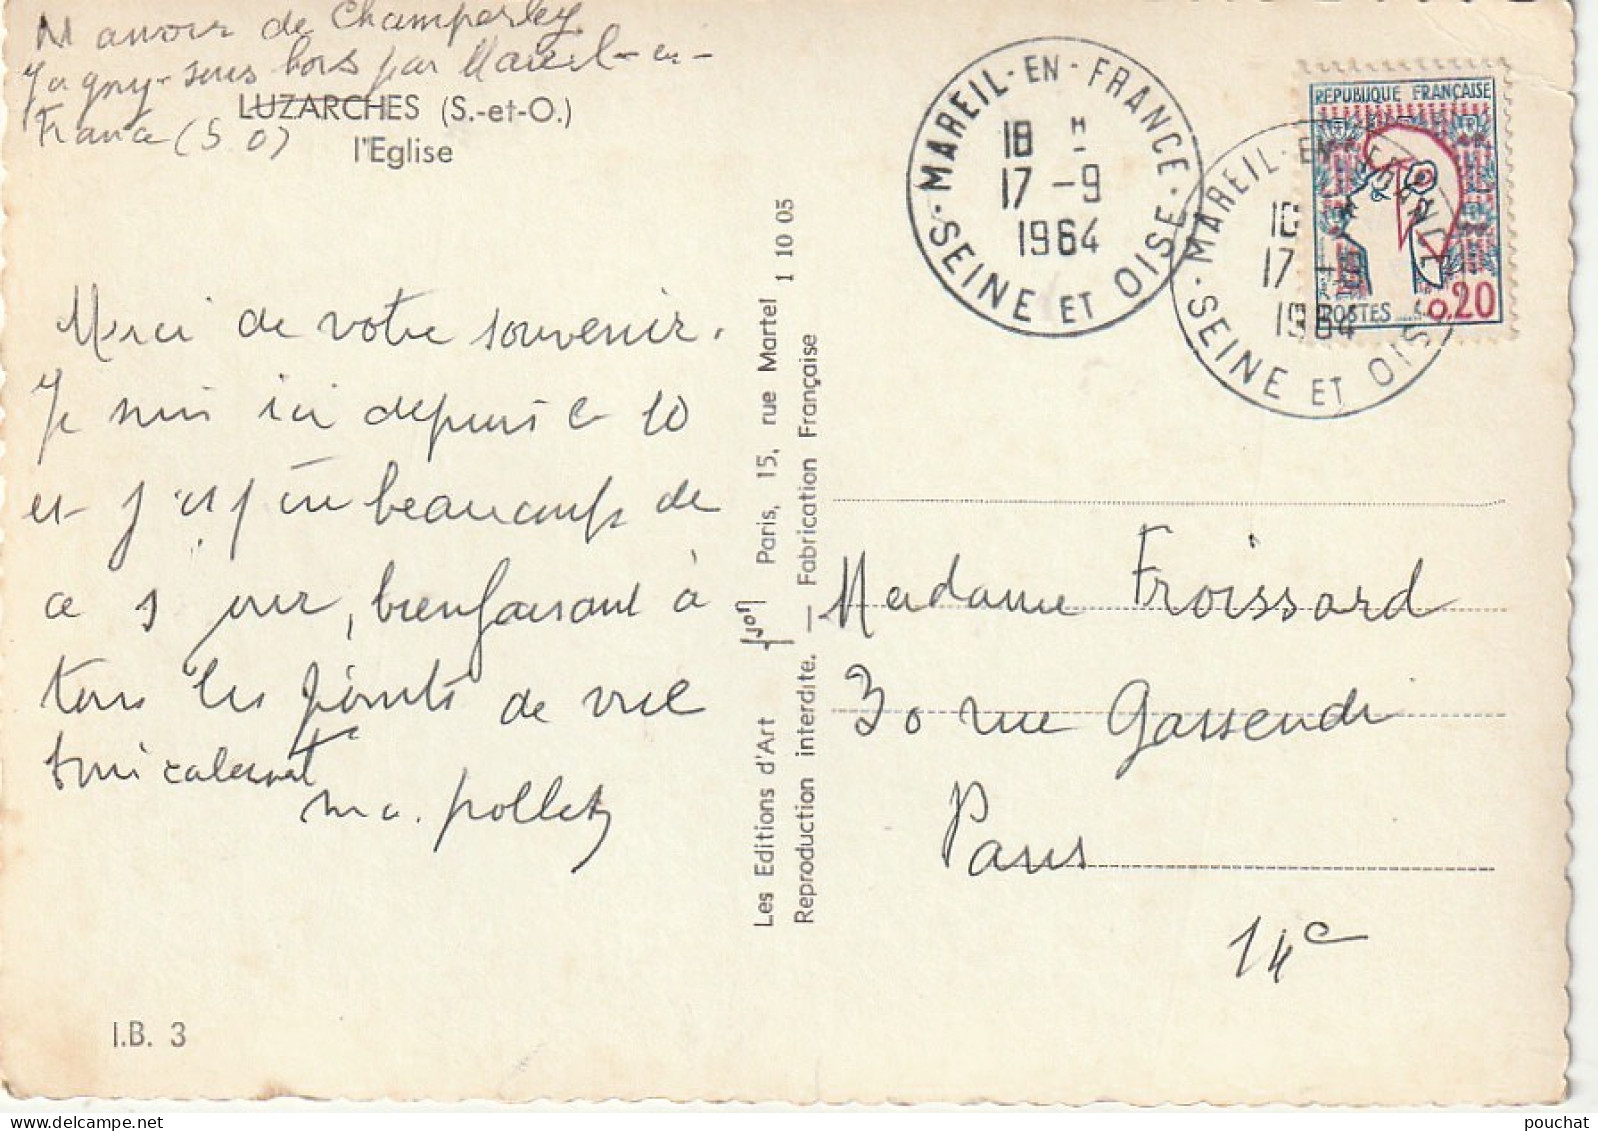 Manoir de Champerley
Jagny-sous bois par Mareil-en-
France (S O)
LUZARCHES (S.-et-O.)
l'Eglise
Merci de votre souvenir.
Je suis ici depuis le 10
et j'ai joui beaucoup de
ce séjour, bienfaisant à
tous les points de vue
Amicalement
M C. Pollet
I.B. 3
Les Editions d'Art Yvon Paris, 15, rue Martel 1 10 05
Reproduction interdite. — Fabrication Française
MAREIL-EN-FRANCE
18 H
17 -9
1964
SEINE ET OISE
MAREIL-EN-FRANCE
18
17 -
1964
SEINE ET OISE
REPUBLIQUE FRANÇAISE
POSTES
0,20
Madame Froissard
30 rue Gassendi
Paris
14e
pouchat